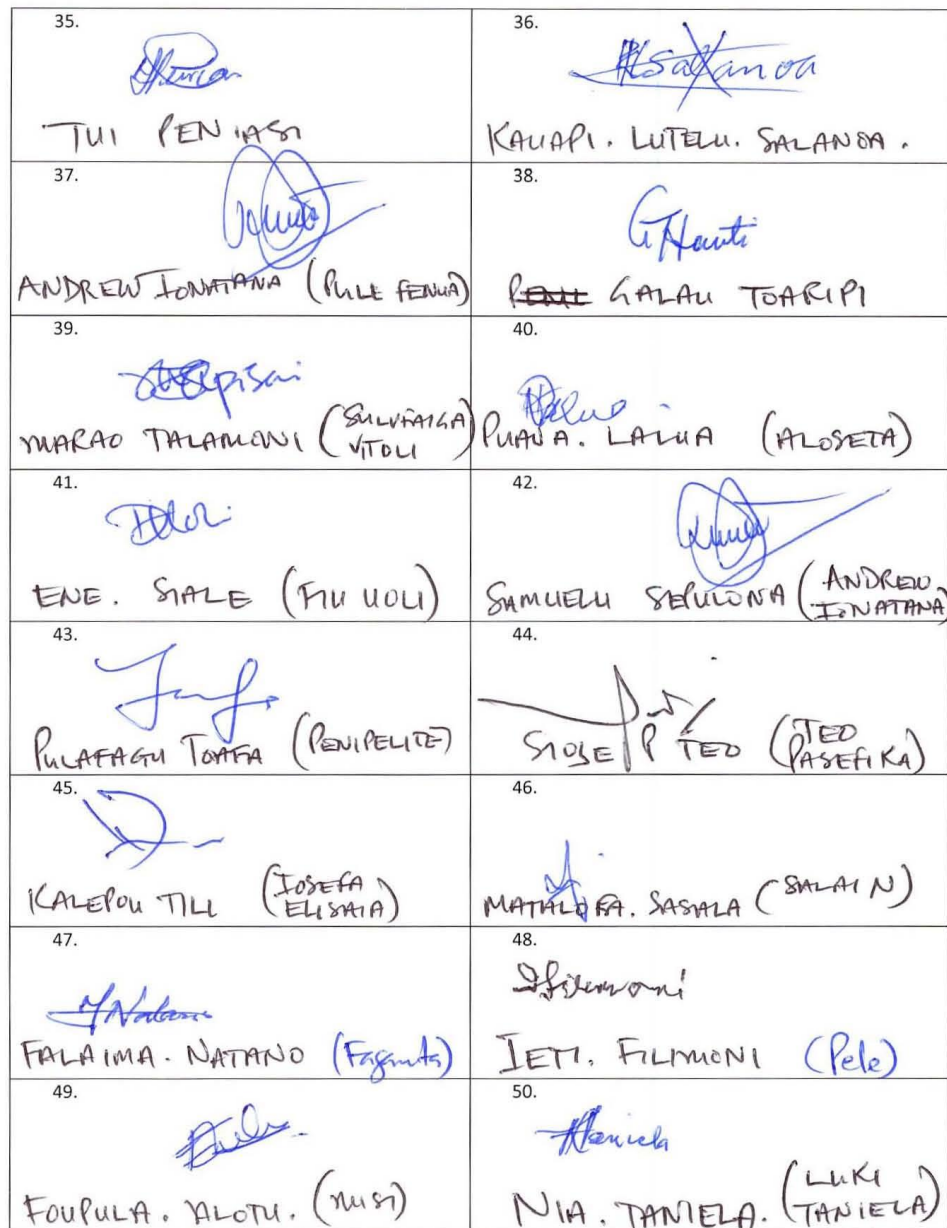 35.
TUI PENIASI
36.
Salanoa
KAUAPI. LUTELU. SALANOA.
37.
ANDREW IONATANA (PULE FENUA)
38.
GTHauti
GALAU TOARIPI
39.
MARAO TALAMONI (SULUFAIGA VITOLI)
40.
PUAVA. LALUA (ALOSETA)
41.
ENE. SIALE (FIU UOLI)
42.
SAMUELU SEPULONA (ANDREW. IONATANA)
43.
PULAFAGU TOAFA (PENIPELITE)
44.
SIOSE P TEO (TEO PASEFIKA)
45.
KALEPOU TILI (IOSEFA ELISAIA)
46.
MATALOFA. SASALA (SALAI N)
47.
FALAIMA. NATANO
48.
Filimoni
IETI. FILIMONI (Pele)
49.
FOUPULA. ALOTU. (NUSI)
50.
Taniela
NIA. TANIELA. (LUKI TANIELA)